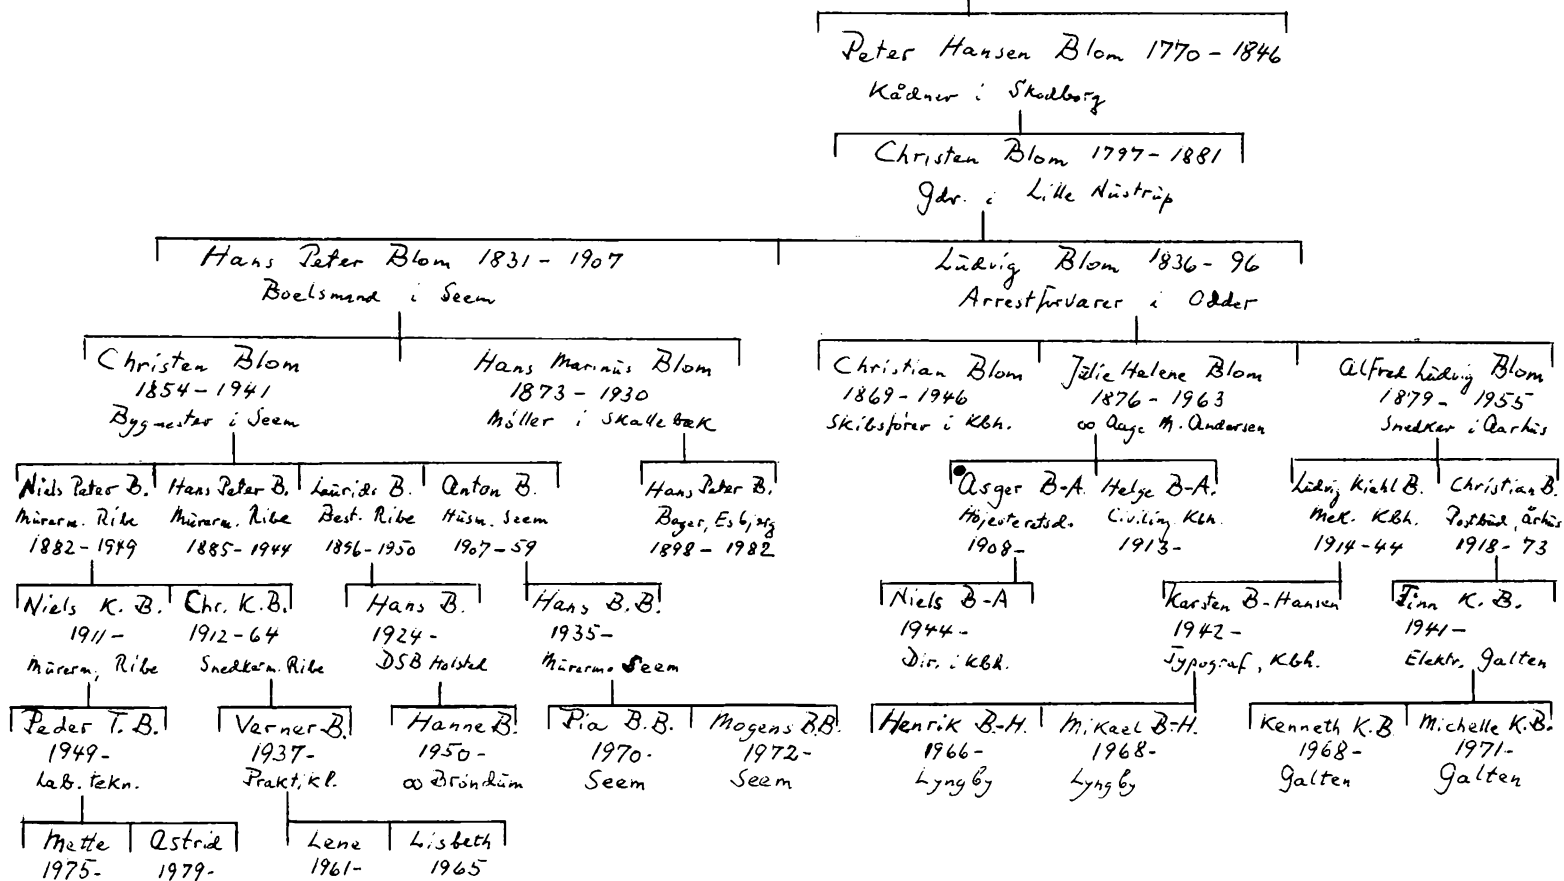 Peter Hansen Blom 1770 - 1846
Kådner i Skodborg
Christen Blom 1797 - 1881
Gdr. i Lille Nustrup
Hans Peter Blom 1831 - 1907
Boelsmand i Seem
Ludvig Blom 1836 - 96
Arrestforvarer i Odder
Christen Blom
1854 - 1941
Bygmester i Seem
Hans Marinus Blom
1873 - 1930
Møller i Skallebæk
Christian Blom
1869 - 1946
Skibsfører i Kbh.
Julie Helene Blom
1876 - 1963
∞ Aage M. Andersen
Alfred Ludvig Blom
1879 - 1955
Snedker i Aarhus
Niels Peter B.
Murerm. Ribe
1882 - 1949
Hans Peter B.
Murerm. Ribe
1885 - 1944
Laurids B.
Best. Ribe
1896 - 1950
Anton B.
Husm. Seem
1907 - 59
Hans Peter B.
Bager, Esbjerg
1898 - 1982
Asger B-A.
Højesteretsd.
1908 -
Helge B-A.
Civiling. Kbh.
1913 -
Ludvig Kiehl B.
Mek. Kbh.
1914 - 44
Christian B.
Postbud, Århus
1918 - 73
Niels K. B.
1911 -
Murerm, Ribe
Chr. K.B.
1912 - 64
Snedkerm. Ribe
Hans B.
1924 -
DSB Holsted
Hans B.B.
1935 -
Murerm. Seem
Niels B-A
1944 -
Dir. i Kbh.
Karsten B-Hansen
1942 -
Typograf, Kbh.
Finn K. B.
1941 -
Elektr. Galten
Peder T. B.
1949 -
Lab. tekn.
Verner B.
1937 -
Prakt, kl.
Hanne B.
1950 -
∞ Brøndum
Pia B.B.
1970 -
Seem
Mogens B.B.
1972 -
Seem
Henrik B.-H.
1966 -
Lyngby
Mikael B-H.
1968 -
Lyngby
Kenneth K.B
1968 -
Galten
Michelle K.B.
1971 -
Galten
Mette
1975 -
Astrid
1979 -
Lene
1961 -
Lisbeth
1965